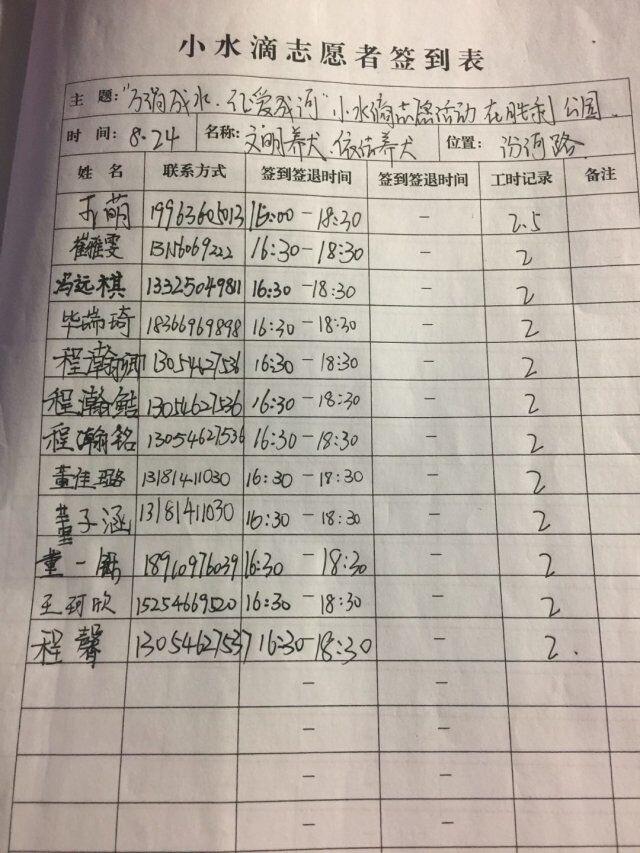 小水滴志愿者签到表
主 题: "万涓成水·让爱成河"小水滴志愿活动 在胜利公园.
时 间: 8.24 名称: 文明养犬.依法养犬 位置: 汾河路
姓 名 联系方式 签到签退时间 签到签退时间 工时记录 备注
萌 19963605013 16:00-18:30 - 2.5
崔雅雯 6069222 16:30-18:30 - 2
冯远祺 13325049811 16:30-18:30 - 2
毕瑞琦 18366969898 16:30-18:30 - 2
程瀚卿 13054627536 16:30-18:30 - 2
程瀚皓 13054627536 16:30-18:30 - 2
程瀚铭 13054627536 16:30-18:30 - 2
董佳璐 13181411030 16:30-18:30 - 2
董子涵 13181411030 16:30-18:30 - 2
董一 18910976039 16:30-18:30 - 2
王珂欣 15254669520 16:30-18:30 - 2
程馨 13054627537 16:30-18:30 - 2.
- -
- -
- -
- -